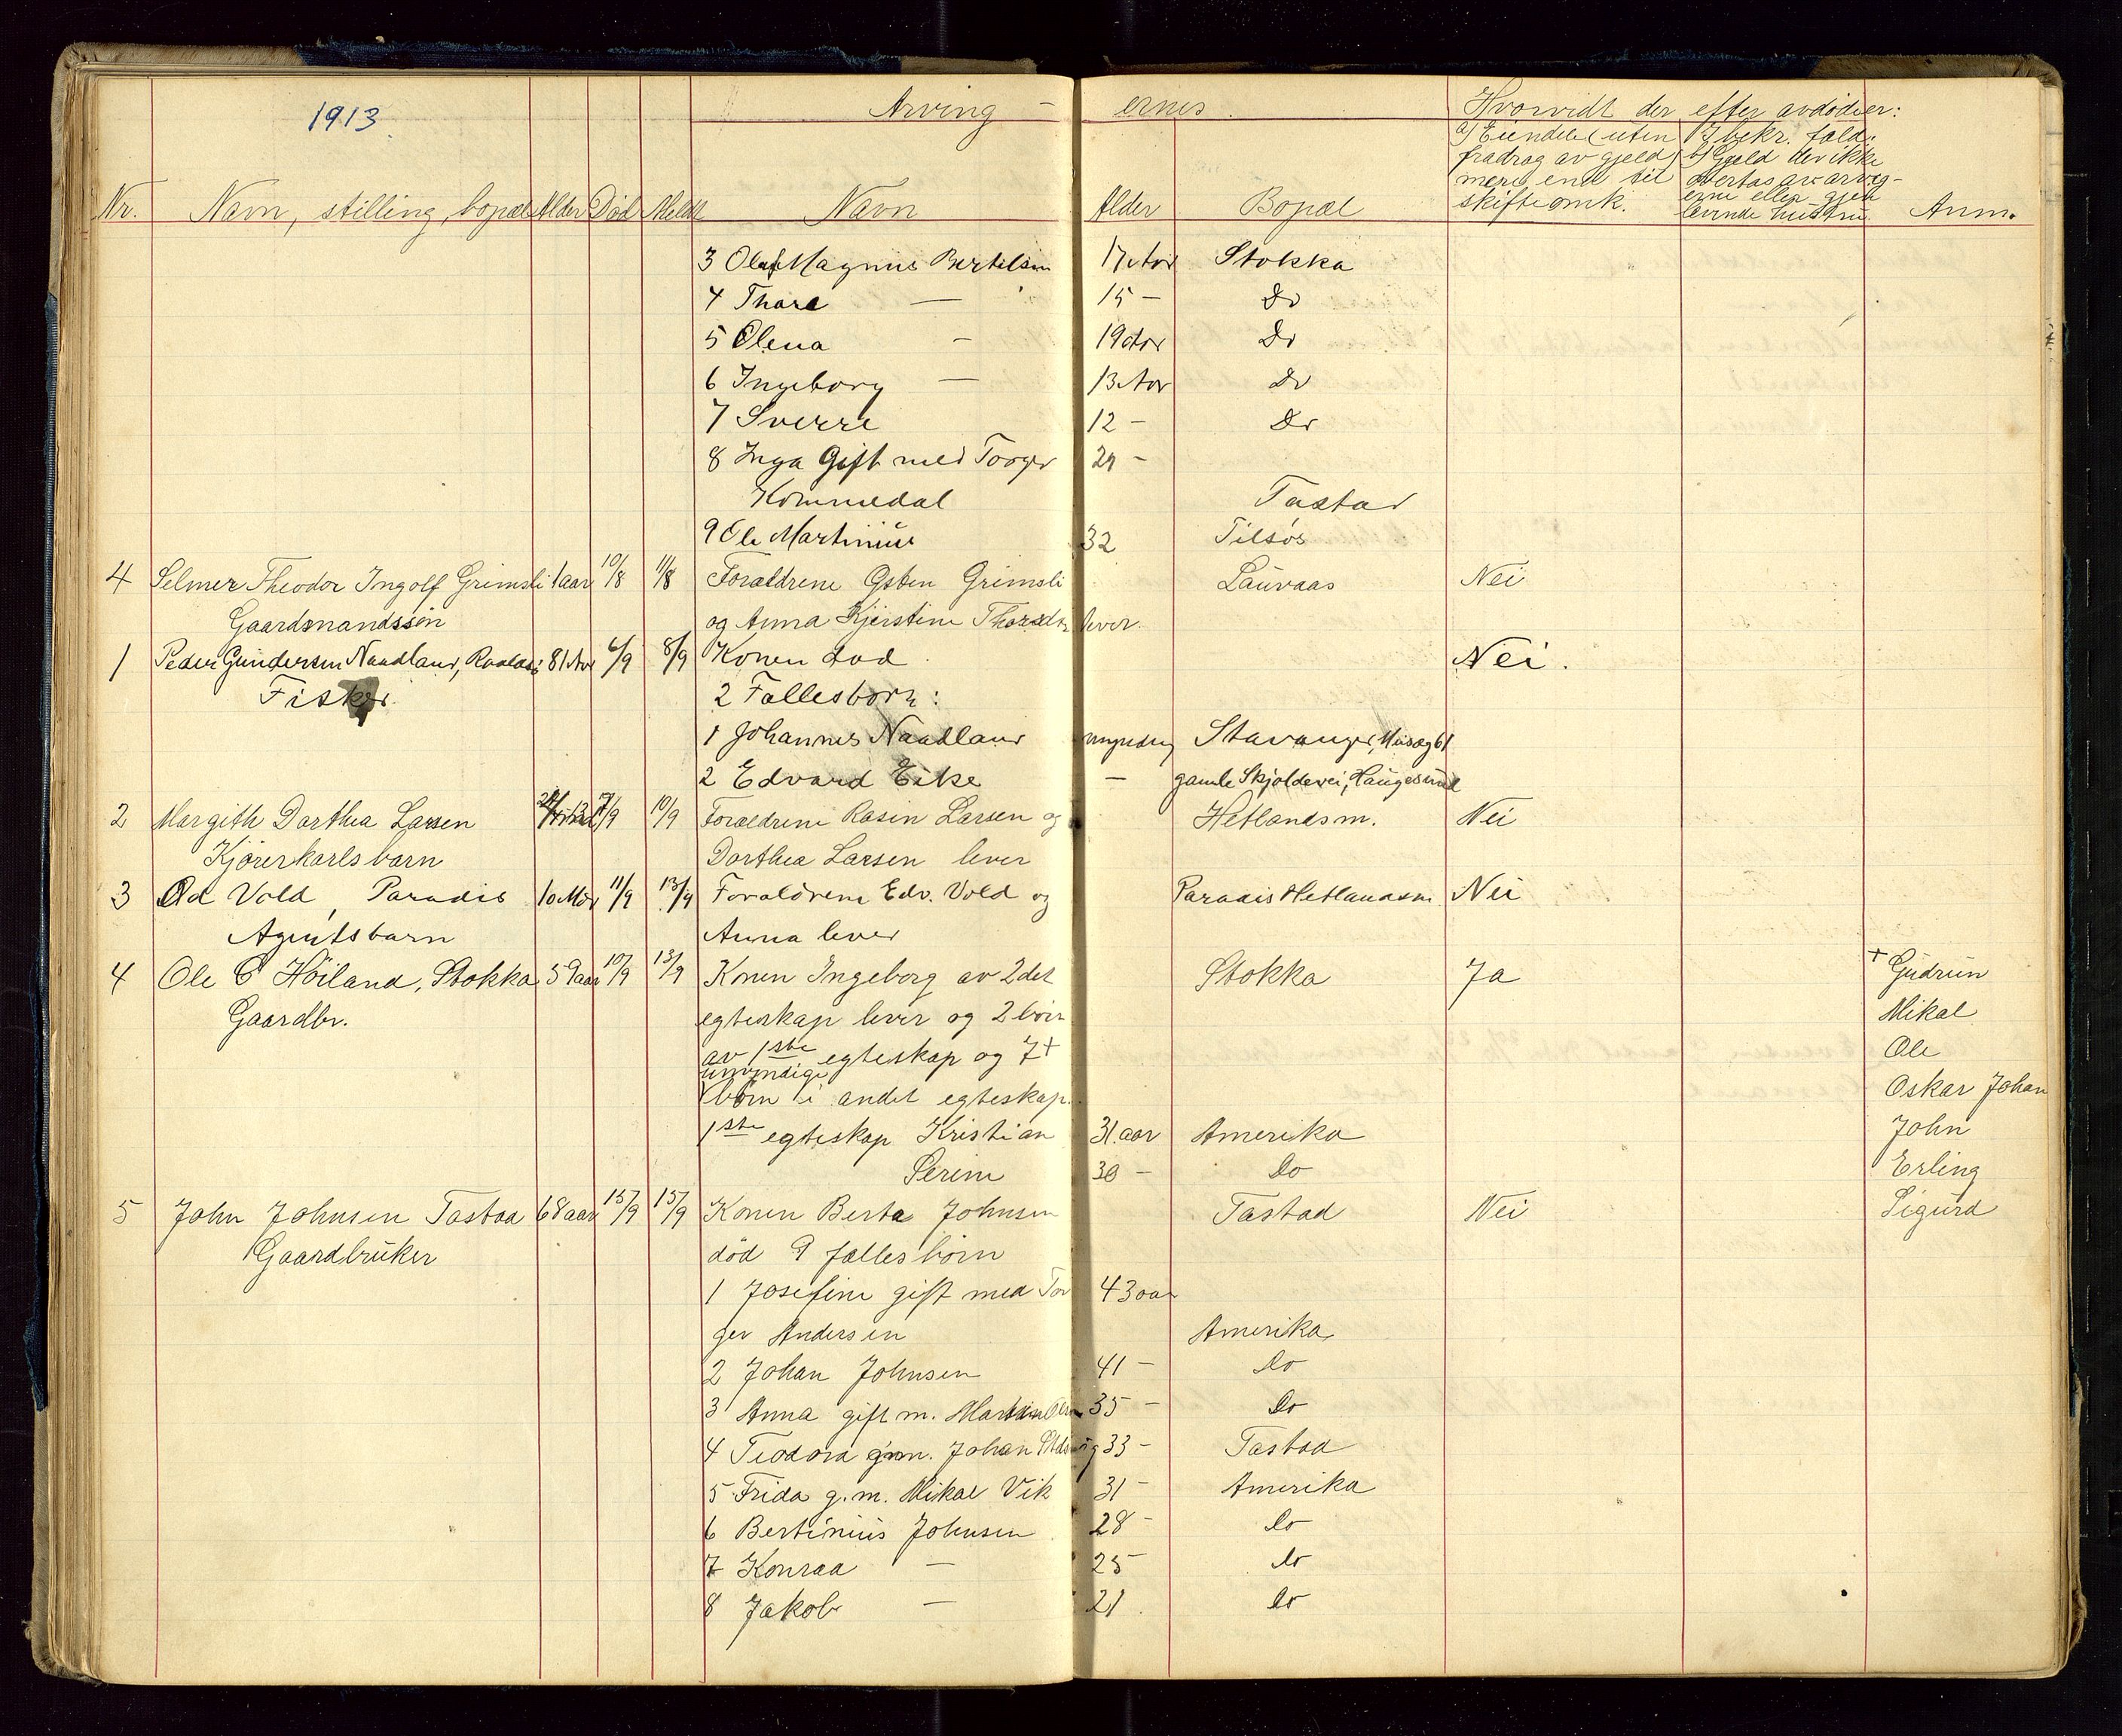 1913.
Arving - ernes.
Hvorvidt der efter avdöde er:
a) Eiendele (uten fradrag av gjeld) mere end til skifteomk.
b) Gjeld der ikke overtas av arvingerne eller gjenlevende hustru
Nr. Navn, stilling, bopæl Alder Död Meldt Navn Alder Bopæl Anm.
3 Olaf Magnus Bertelsen 17 Aar Stokka
4 Thora — 15 - Do
5 Olena — 19 Aar Do
6 Ingeborg — 13 Aar Do
7 Sverre 12 - Do
8 Inga Gift med Torger 29 -
Kommedal Tastad
9 Ole Martinius 32
4 Selmer Theodor Ingolf Grimsli 1 aar 10/8 11/8 Forældrene Osten Grimsli Lauvaas Nei
Gaardmandssön og Anna Kjerstine lever.
1 Peder Gundersen Naadland, 81 Aar 6/9 8/9 Konen död. Nei.
Fisker 2 Fællesbörn:
1 Johannes Naadland myndig Stavanger,
2 Edvard Eike — gamle Skjoldevei, Haugesund
2 Margith Dorthea Larsen 7/9 10/9 Forældrene Rasin Larsen og Hetlandsm. Nei
Kjörerkarlsbarn Dorthea Larsen lever
3 Od Vold, Paradis 10 Mdr 11/9 13/9 Forældrene Edv. Vold og Paradis Hetlandsm Nei
Agentsbarn Anna lever
4 Ole C Höiland, Stokka 59 aar 10/9 13/9 Konen Ingeborg av 2det Stokka Ja + Gudrun
Gaardbr. egteskap lever og 2 börn Mikal
av 1ste egteskap og 7+ Ole
umyndige
börn i andet egteskap. Oskar Johan
1ste egteskap Kristian 31 aar Amerika John
Serine 30 - Do Erling
5 John Johnsen Tastad 68 aar 15/9 15/9 Konen Berta Johnsen Tastad Nei Sigurd
Gaardbruker död 9 fælles börn
1 Josefine gift med Tor 43 aar
ger Andersen Amerika
2 Johan Johnsen 41 - Do
3 Anna gift m. Martin 35 - Do
4 Teodora g.m. Johan 33 - Tastad
5 Frida g.m. Mikal Vik 31 - Amerika
6 Bertinius Johnsen 28 - Do
7 Konrad — 25 Do
8 Jakob — 21. Do